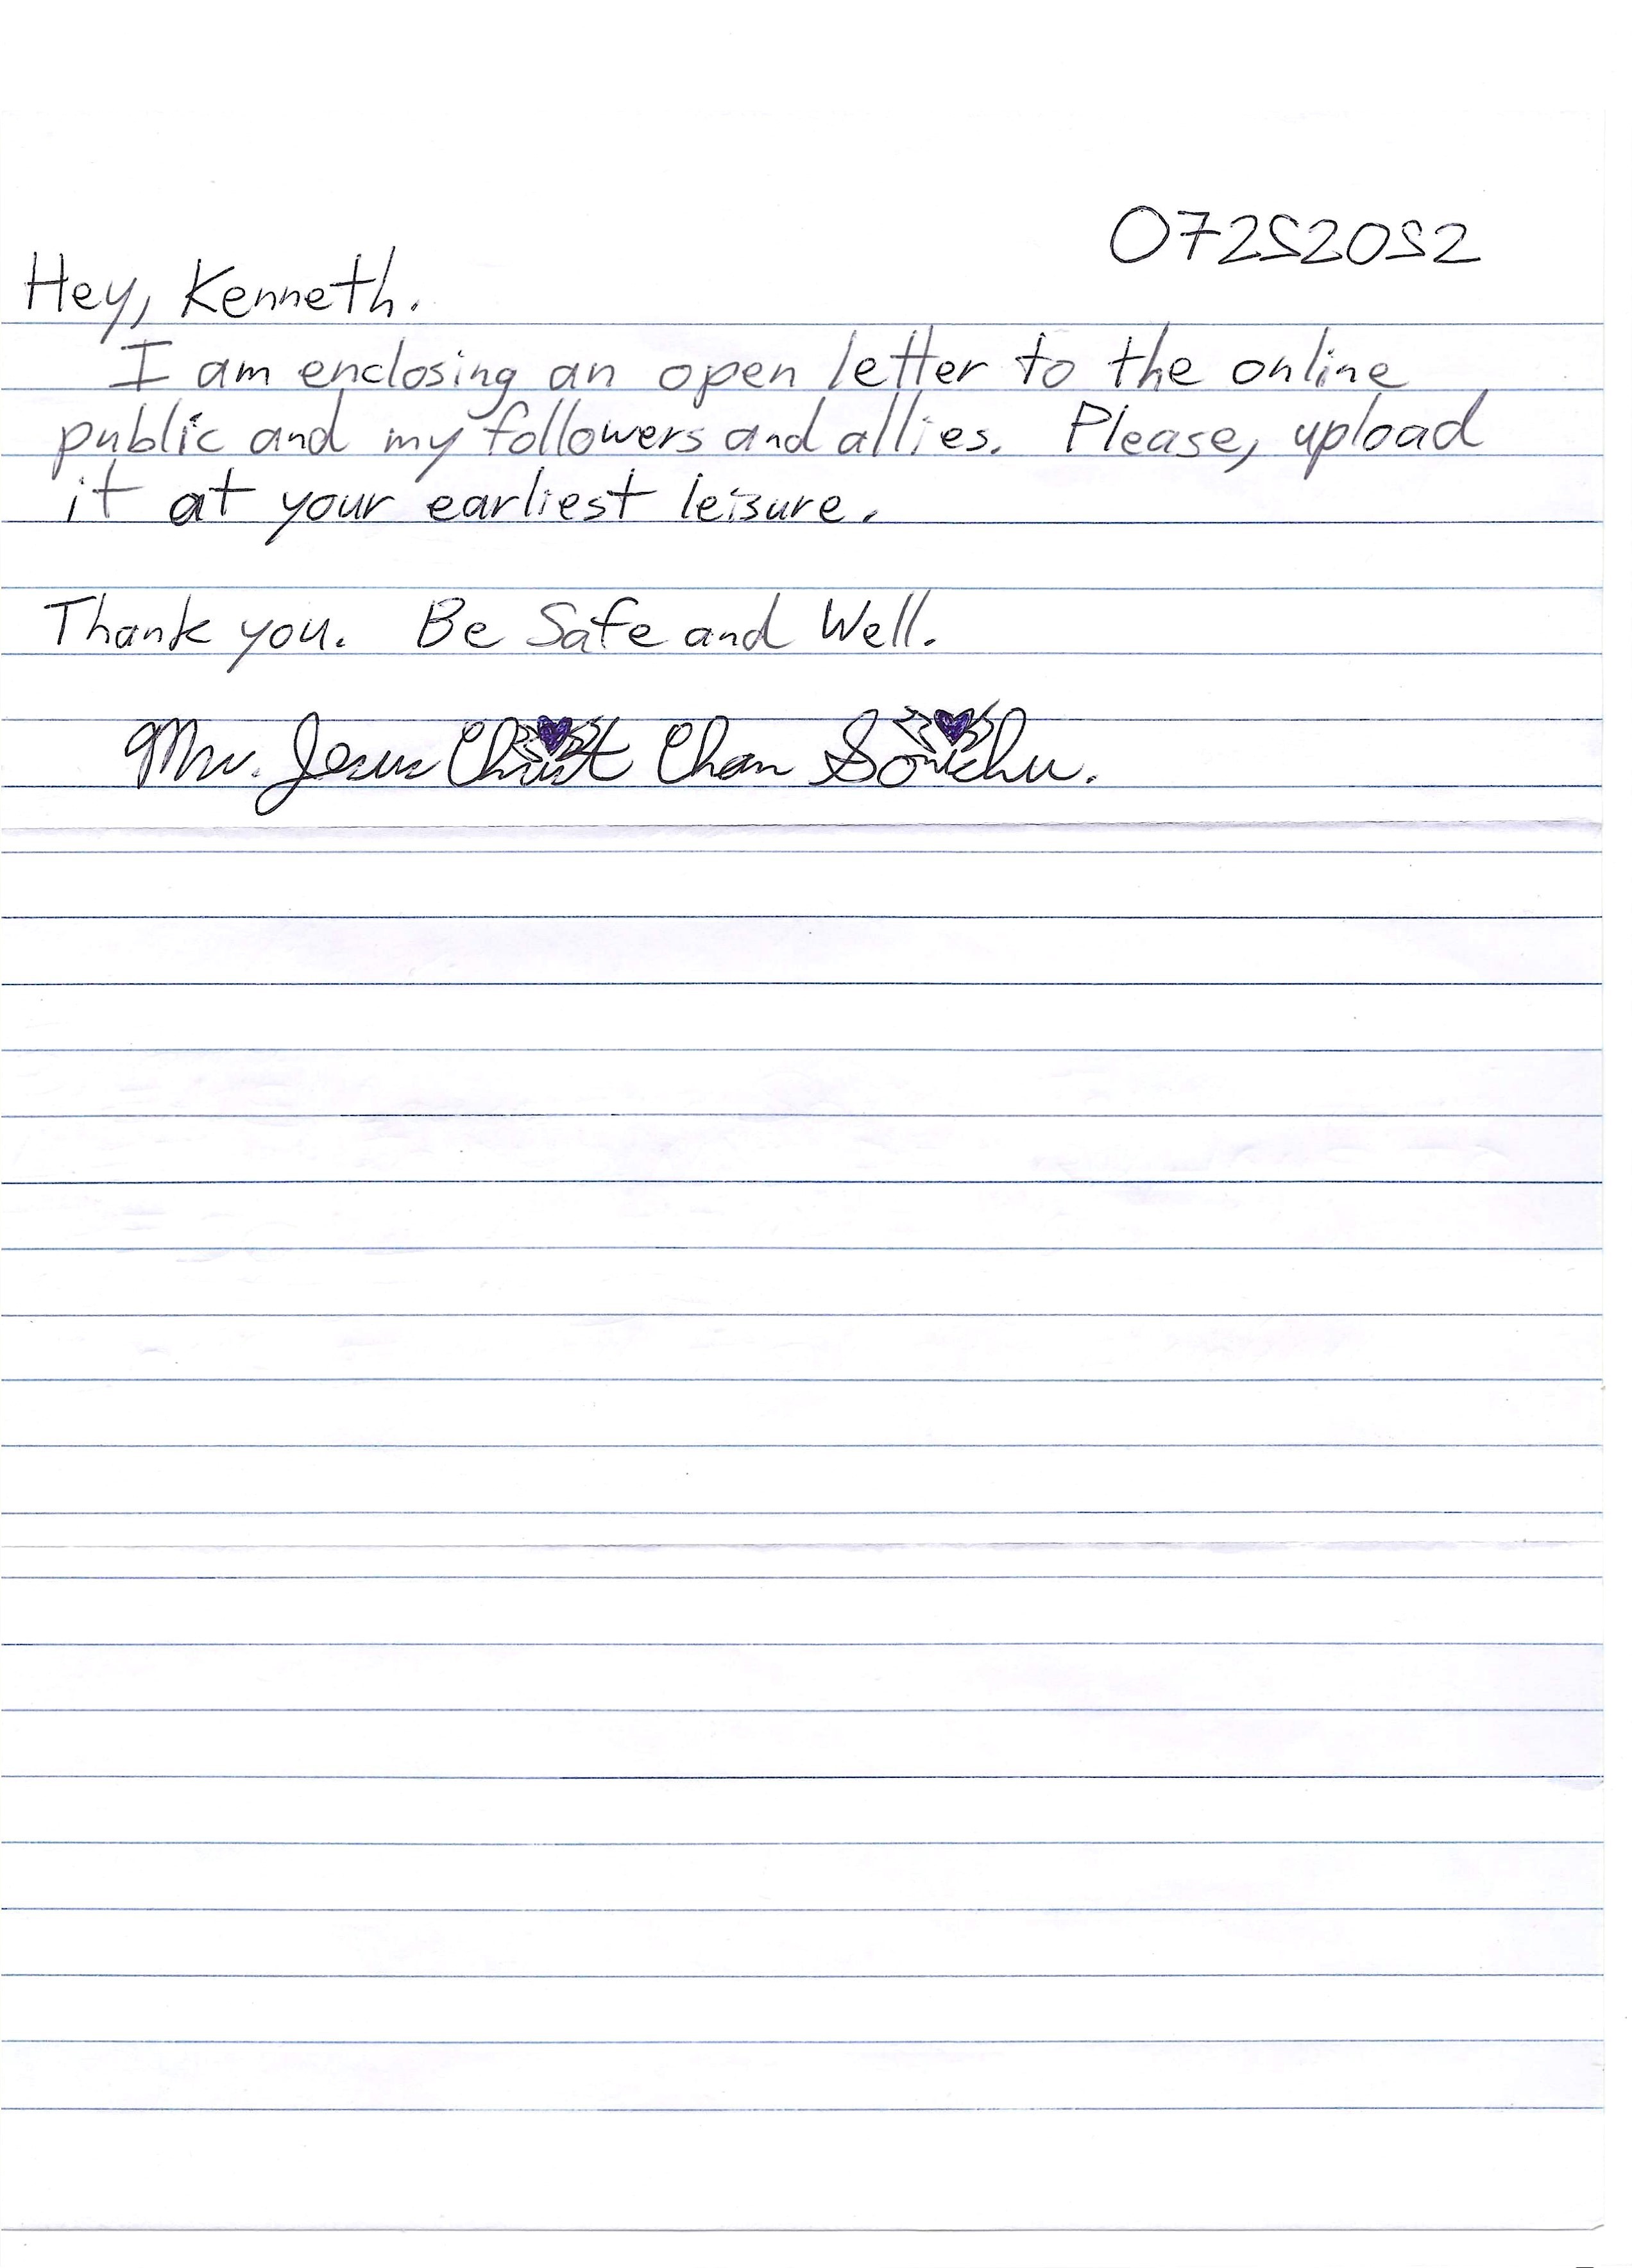 07252052
Hey, Kenneth.
I am enclosing an open letter to the online
public and my followers and allies. Please, upload
it at your earliest leisure.
Thank you. Be Safe and Well.
Mrs. Jesus Christ Chan Sonichu.